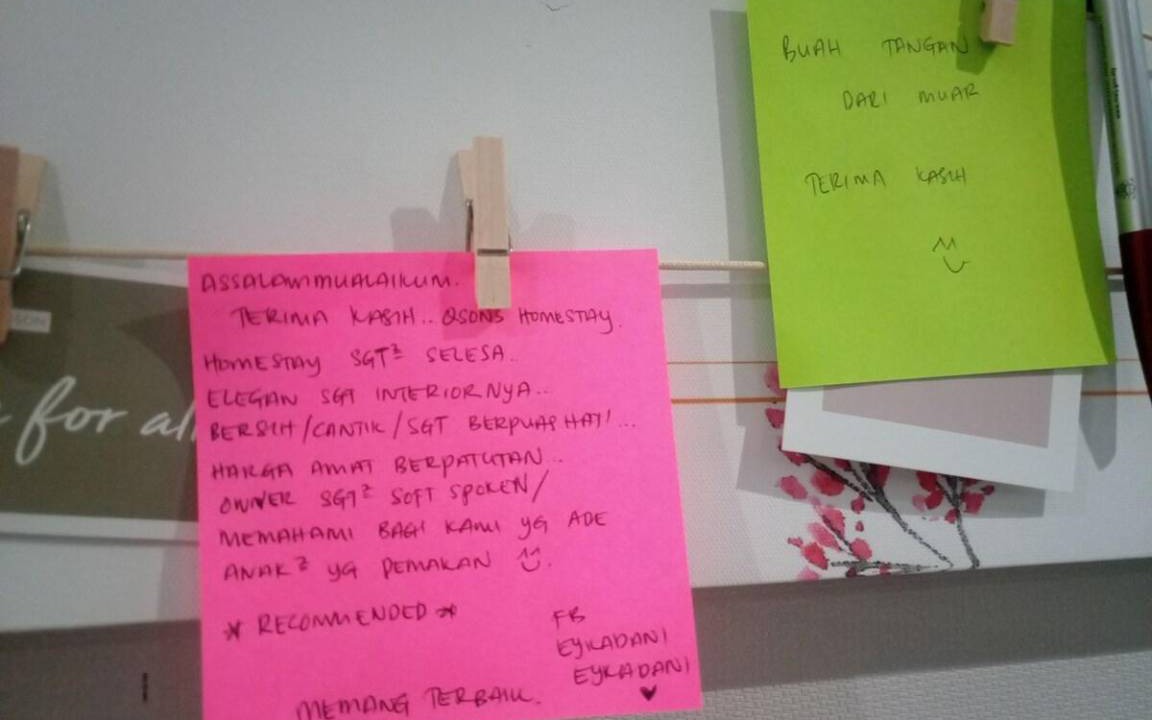 ASSALAMMUALAIKUM.
TERIMA KASIH.. QSONS HOMESTAY.
HOMESTAY SGT² SELESA..
ELEGAN SGT INTERIORNYA...
BERSIH/CANTIK/SGT BERPUAS HATI...
HARGA AMAT BERPATUTAN...
OWNER SGT² SOFT SPOKEN/
MEMAHAMI BAGI KAMI YG ADE
ANAK² YG PEMAKAN
* RECOMMENDED *
FB
EYKADANI
EYKADANI
MEMANG TERBAIK.
BUAH TANGAN
DARI MUAR
TERIMA KASIH
for all
SON